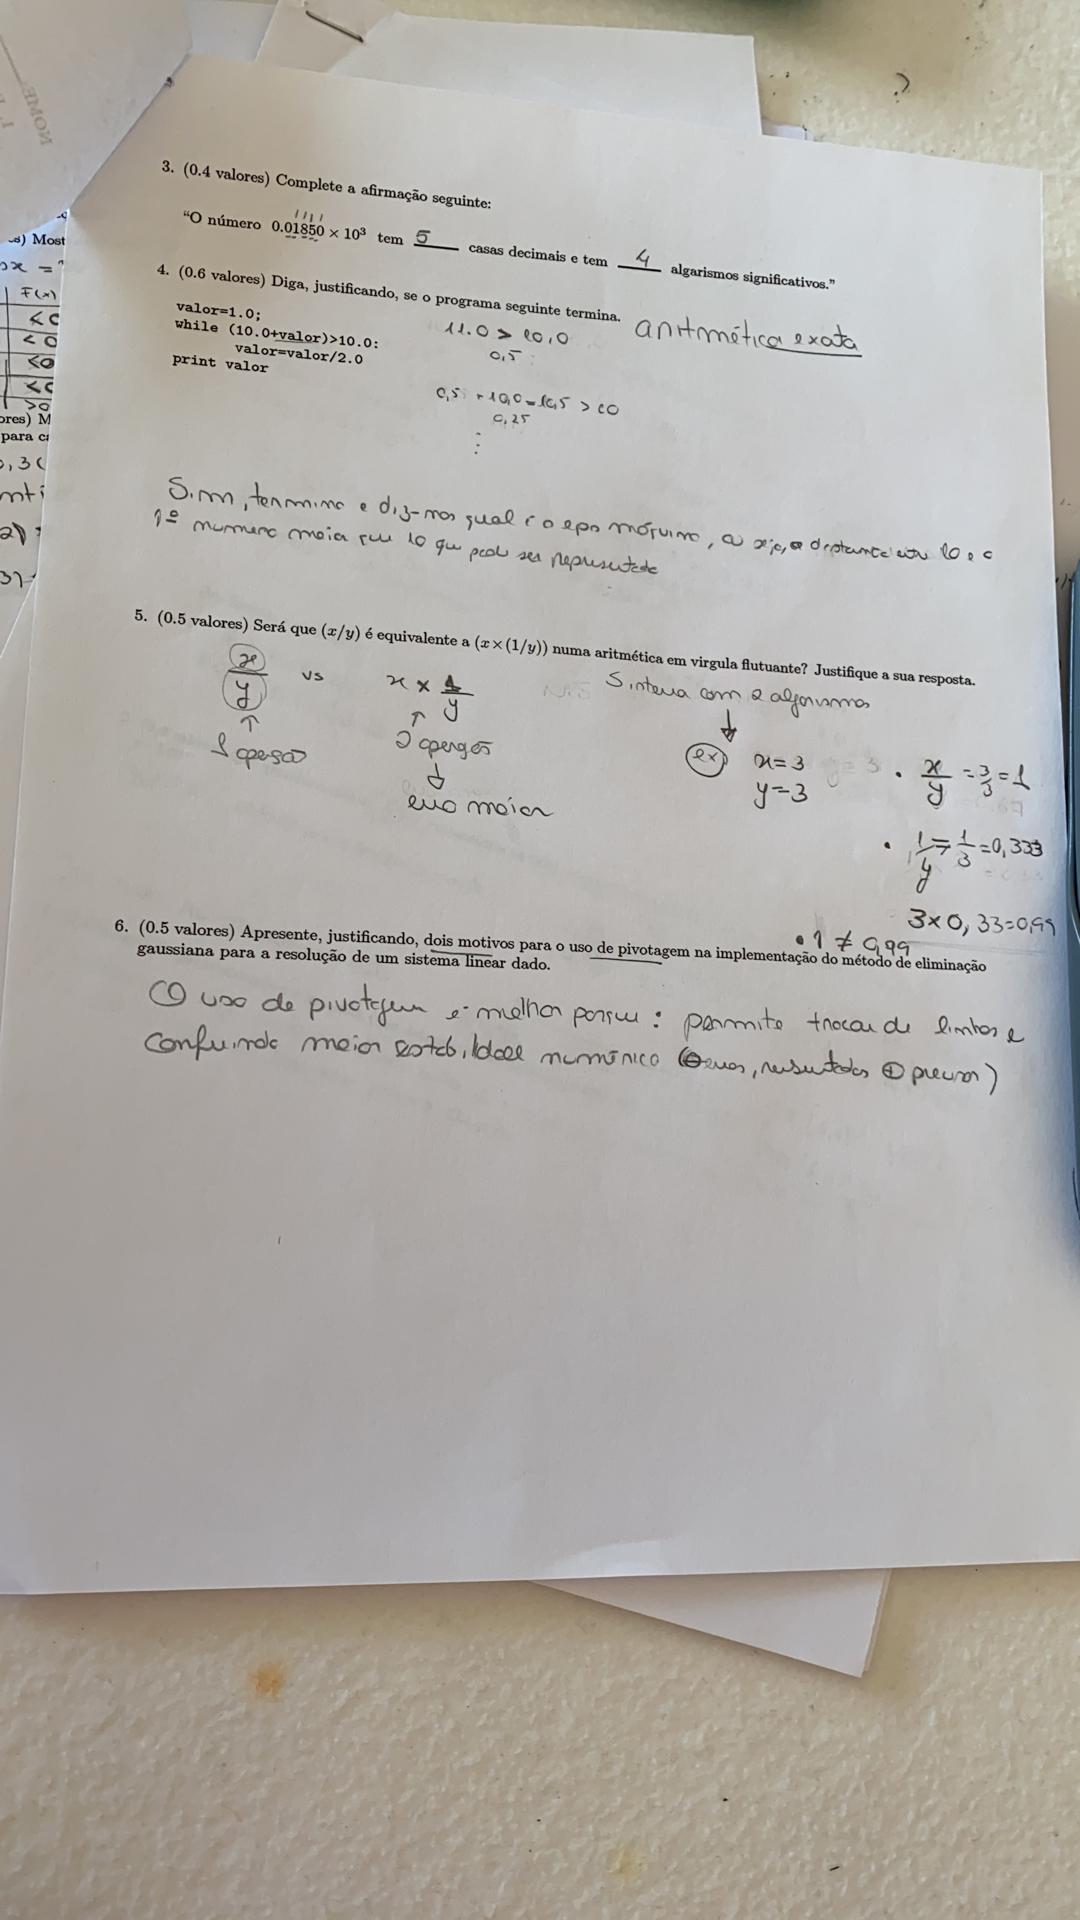 NOME
3. (0.4 valores) Complete a afirmação seguinte:
“O número 0.01850 × 10³ tem 5 casas decimais e tem 4 algarismos significativos.”
4. (0.6 valores) Diga, justificando, se o programa seguinte termina.
aritmética exata
valor=1.0;
while (10.0+valor)>10.0:
valor=valor/2.0
print valor
11.0 > 10,0
0,5
0,5 + 10,0 = 10,5 > 10
0,25
⋮
Sim, termina e diz-nos qual é o eps máquina, ou seja, a distancia entre 10 e o
1º numero maior que 10 que pode ser representado
5. (0.5 valores) Será que (x/y) é equivalente a (x × (1/y)) numa aritmética em virgula flutuante? Justifique a sua resposta.
x/y vs x × 1/y
↑ ↑
1 operação 2 operações
↓
erro maior
Sistema com 2 algarismos
↓
ex) x=3
y=3
• x/y = 3/3 = 1
• 1/y = 1/3 = 0,333
3×0,33=0,99
• 1 ≠ 0,99
6. (0.5 valores) Apresente, justificando, dois motivos para o uso de pivotagem na implementação do método de eliminação
gaussiana para a resolução de um sistema linear dado.
O uso de pivotagem é melhor porque: permite troca de linhas e
maior estabilidade numérica (⊖ erros, resultados ⊕ precisos)
s) Most
F(x)
<0
<0
<0
>0
ores) M
para c